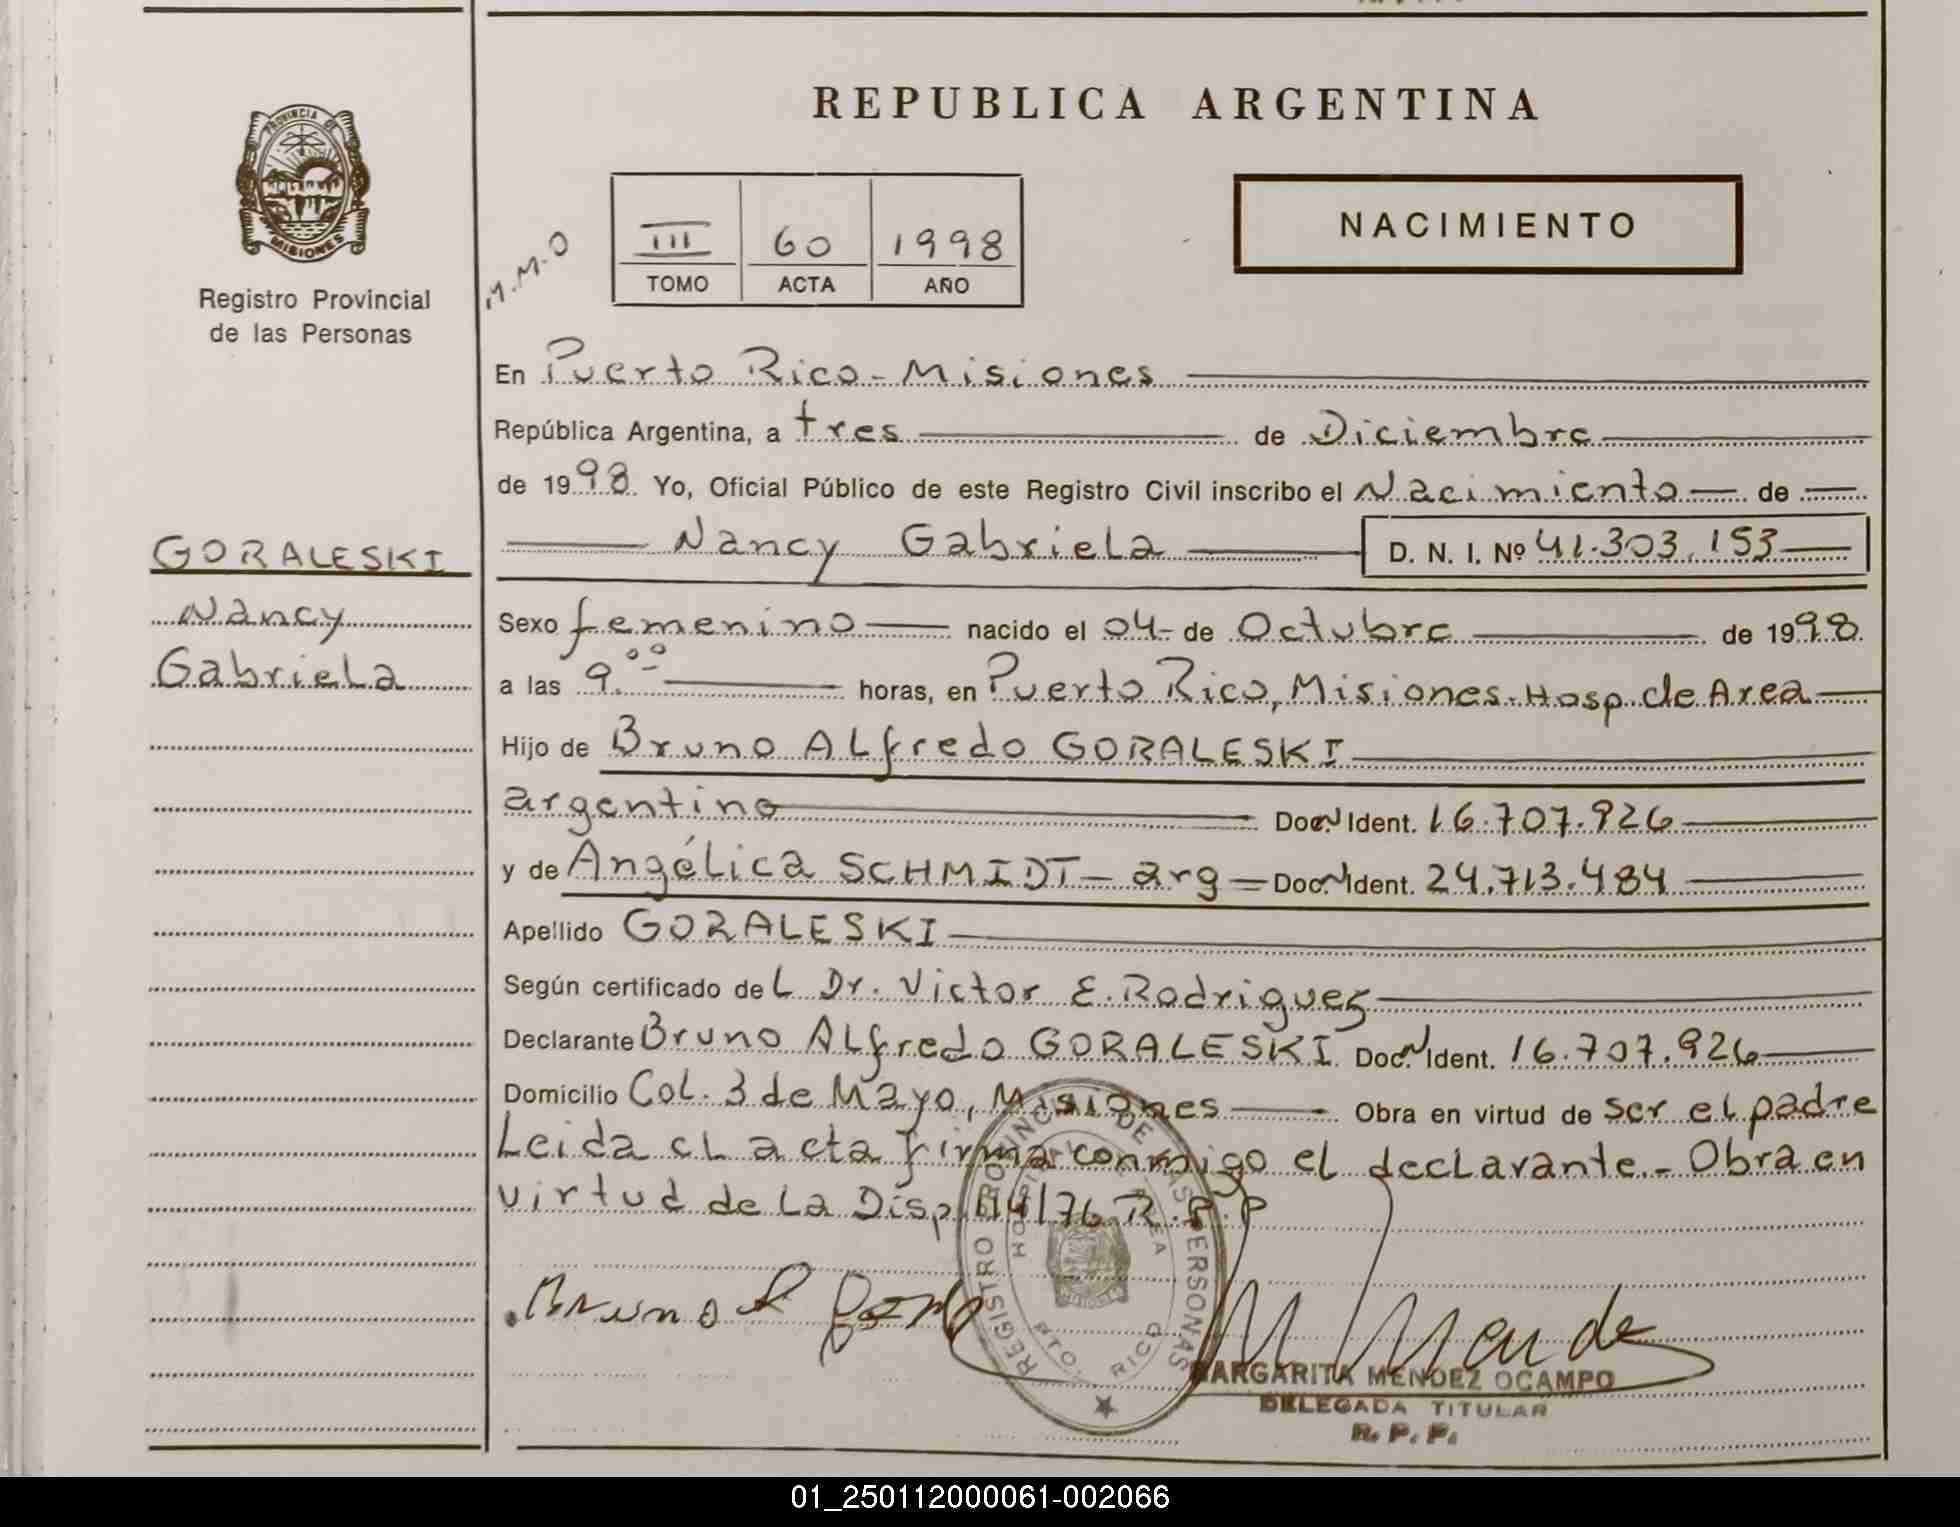 REPUBLICA ARGENTINA
PROVINCIA DE
MISIONES
Registro Provincial
de las Personas
M.M.O
III 60 1998
TOMO ACTA AÑO
NACIMIENTO
En Puerto Rico - Misiones
República Argentina, a tres de Diciembre
de 1998. Yo, Oficial Público de este Registro Civil inscribo el Nacimiento de
GORALESKI
Nancy Gabriela D. N. I. Nº 41.303.153
Nancy
Sexo femenino nacido el 04- de Octubre de 1998
Gabriela
a las 9.00 horas, en Puerto Rico, Misiones. Hosp. de Area
Hijo de Bruno ALfredo GORALESKI
argentino Doc. N Ident. 16.707.926
y de Angélica SCHMIDT - arg = Doc. N Ident. 24.713.484
Apellido GORALESKI
Según certificado del Dr. Victor E. Rodriguez
Declarante Bruno ALfredo GORALESKI. Doc. N Ident. 16.707.926
Domicilio Col. 3 de Mayo, Misiones Obra en virtud de ser el padre
Leida el acta firma conmigo el declarante.- Obra en
virtud de La Disp. 114/76 R.P.P
REGISTRO PROVINCIAL DE LAS PERSONAS
HOSPITAL AREA
PTO. RICO
MARGARITA MENDEZ OCAMPO
DELEGADA TITULAR
R. P. P.
01_250112000061-002066